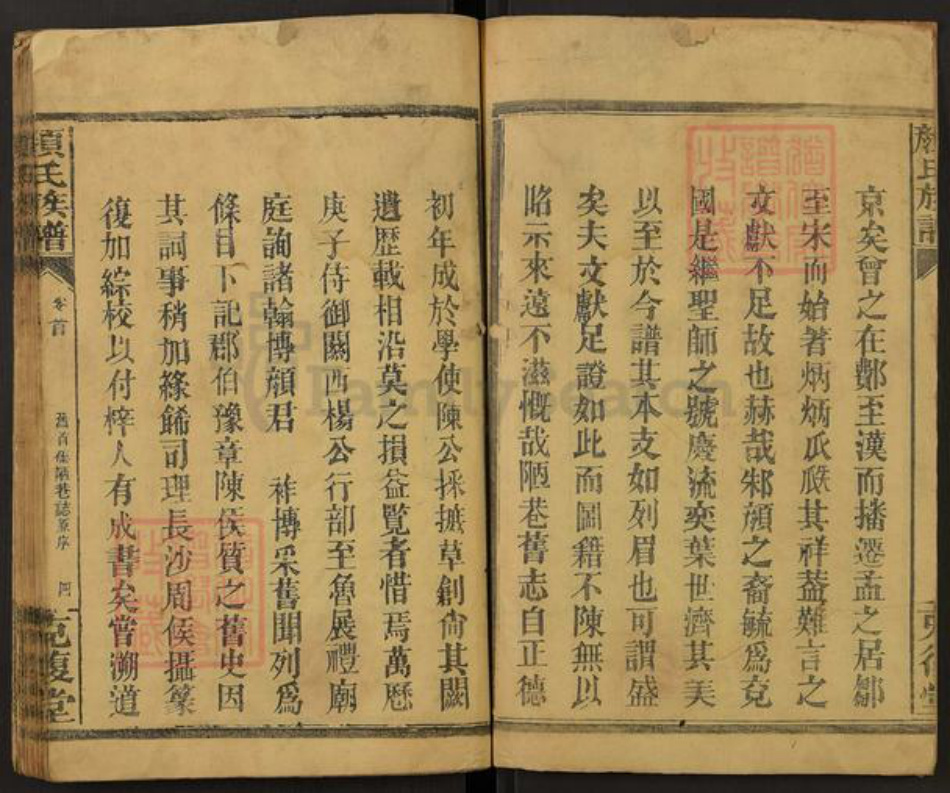 顏氏族譜
京矣曾之在鄭至漢而播遷孟之居鄒
至宋而始著炳炳瓜瓞其祥葢難言之
文獻不足故也赫哉邾顏之裔毓爲克
國是繼聖師之號慶流奕葉世濟其美
以至於今譜其本支如列眉也可謂盛
矣夫文獻足證如此而圖籍不陳無以
昭示來遠不滋慨哉陋巷舊志自正德
初年成於學使陳公採摭草創尙其闕
遺歷載相沿莫之損益覽者惜焉萬歷
庚子侍御關西楊公行部至魯展禮廟
庭詢諸翰博顏君 祚博采舊聞列爲
條目下記郡伯豫章陳侯質之舊史因
其詞事稍加緣餙司理長沙周侯攝篆
復加綜校以付梓人有成書矣嘗溯道
氏族譜
卷首
舊首 陋巷誌原序
四
克復堂
FamilySearch